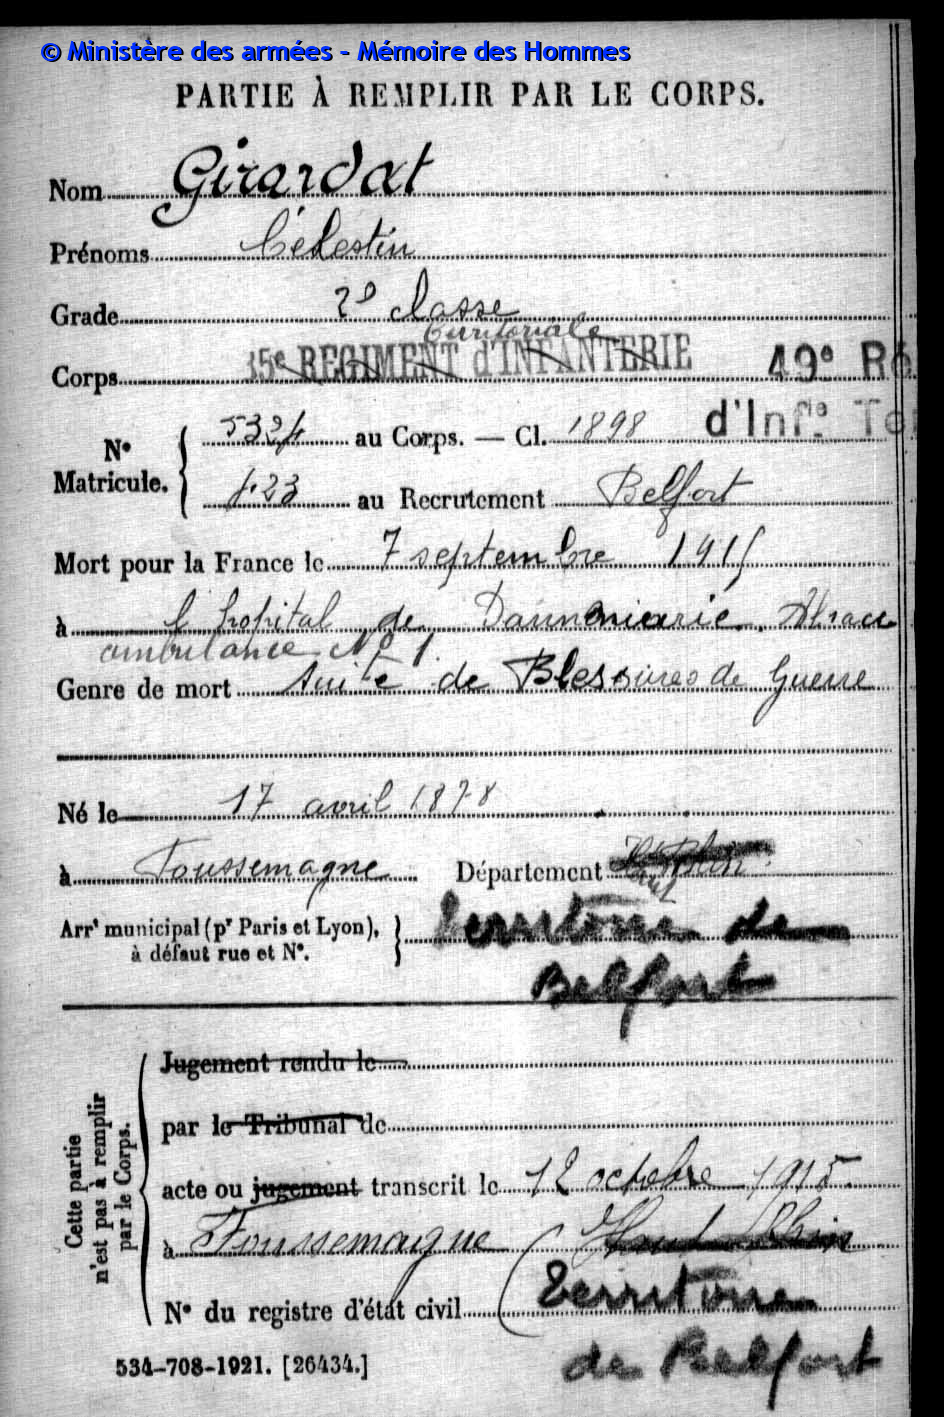 © Ministère des armées - Mémoire des Hommes
PARTIE À REMPLIR PAR LE CORPS.
Nom Girardat
Prénoms Célestin
Grade 2e classe
territoriale
Corps 35e REGIMENT d'INFANTERIE 49e Ré
d'Infie Ter
No Matricule. 5324 au Corps. — Cl. 1898
423 au Recrutement Belfort
Mort pour la France le 7 septembre 1915
à l'hopital de Dannemarie. Alsace
ambulance No 1.
Genre de mort Suite de Blessures de Guerre
Né le 17 avril 1878
à Foussemagne Département Ht Rhin
Arrt municipal (pr Paris et Lyon), à défaut rue et No. Territoire de
Belfort
Cette partie n'est pas à remplir par le Corps.
Jugement rendu le
par le Tribunal de
acte ou jugement transcrit le 12 octobre 1915
à Foussemagne Haut Rhin
No du registre d'état civil Territoire
de Belfort
534-708-1921. [26434.]